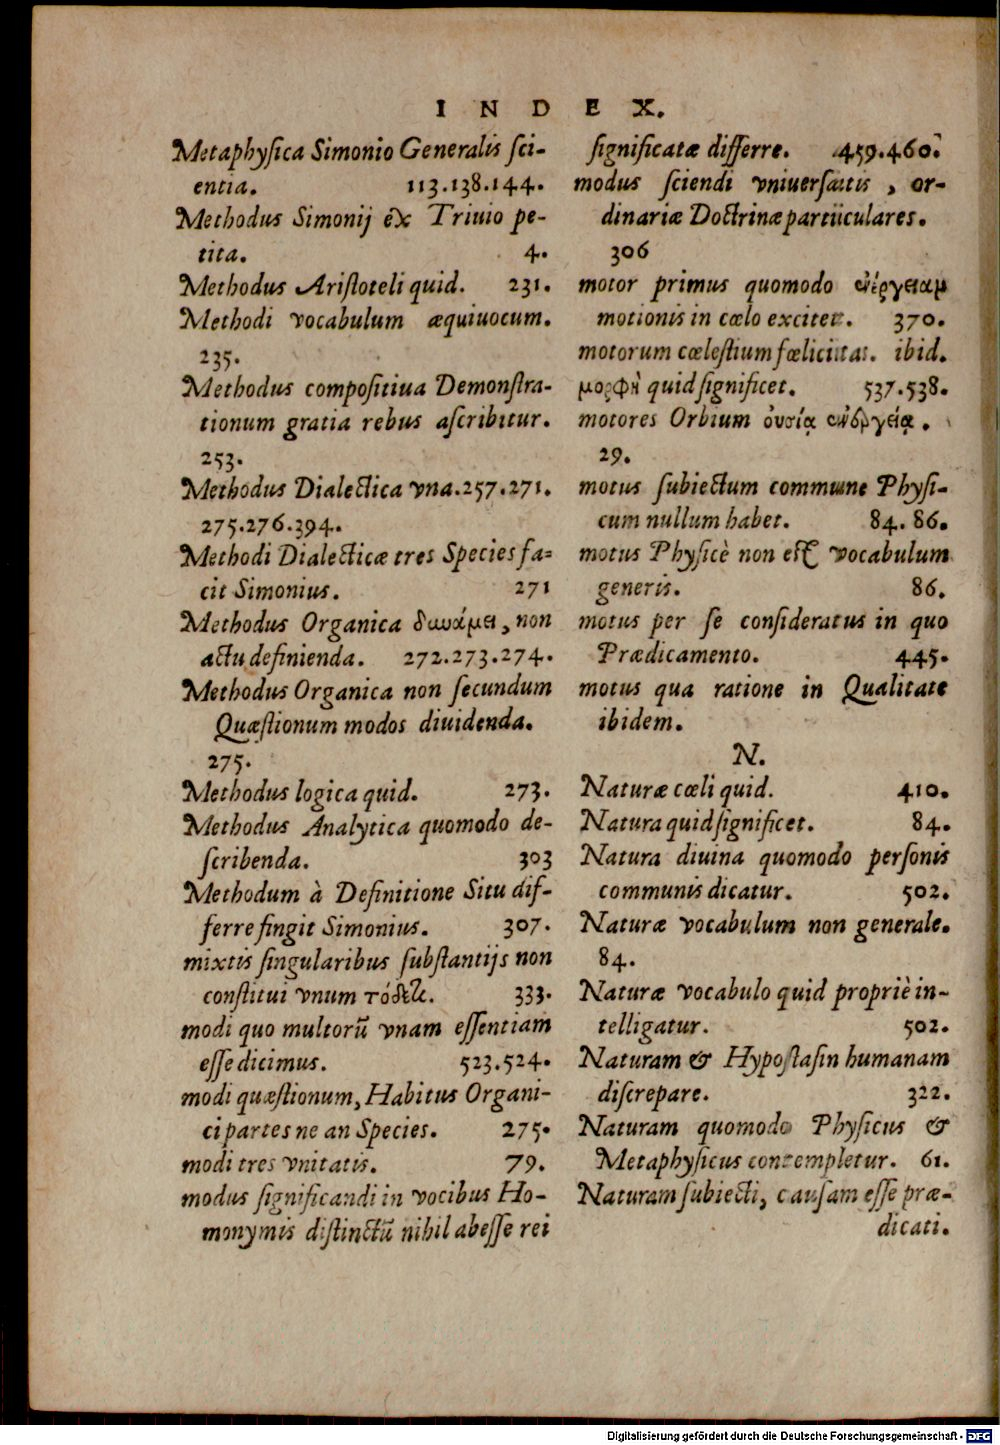 INDEX.
Metaphyſica Simonio Generalis ſci-
entia. 113.138.144.
Methodus Simonij ex Triuio pe-
tita. 4.
Methodus Ariſtoteli quid. 231.
Methodi vocabulum æquiuocum.
235.
Methodus compoſitiua Demonſtra-
tionum gratia rebus aſcribitur.
253.
Methodus Dialectica vna.257.271.
275.276.394.
Methodi Dialecticæ tres Species fa=
cit Simonius. 271
Methodus Organica δυνάμει, non
actu definienda. 272.273.274.
Methodus Organica non ſecundum
Quæſtionum modos diuidenda.
275.
Methodus logica quid. 273.
Methodus Analytica quomodo de-
ſcribenda. 303
Methodum à Definitione Situ dif-
ferre fingit Simonius. 307.
mixtis ſingularibus ſubſtantijs non
conſtitui vnum τόδε τι. 333.
modi quo multorū vnam eſſentiam
eſſe dicimus. 523.524.
modi quæſtionum, Habitus Organi-
ci partes ne an Species. 275.
modi tres vnitatis. 79.
modus ſignificandi in vocibus Ho-
monymis diſtinctū nihil abeſſe rei
ſignificatæ differre. 459.460.
modus ſciendi vniuerſalis, or-
dinariæ Doctrinæ particulares.
306
motor primus quomodo ἐνέργειαμ
motionis in cœlo excitet. 370.
motorum cœleſtium fœlicitas. ibid.
μορφὴ quid ſignificet. 537.538.
motores Orbium οὐσίᾳ ἐνέργείᾳ.
29.
motus ſubiectum commune Phyſi-
cum nullum habet. 84. 86.
motus Phyſicè non eſt vocabulum
generis. 86.
motus per ſe conſideratus in quo
Prædicamento. 445.
motus qua ratione in Qualitate
ibidem.
N.
Naturæ cœli quid. 410.
Natura quid ſignificet. 84.
Natura diuina quomodo perſonis
communis dicatur. 502.
Naturæ vocabulum non generale.
84.
Naturæ vocabulo quid propriè in-
telligatur. 502.
Naturam & Hypoſtaſin humanam
diſcrepare. 322.
Naturam quomodo Phyſicus &
Metaphyſicus contempletur. 61.
Naturam ſubiecti, cauſam eſſe præ-
dicati.
Digitalisierung gefördert durch die Deutsche Forschungsgemeinschaft - DFG